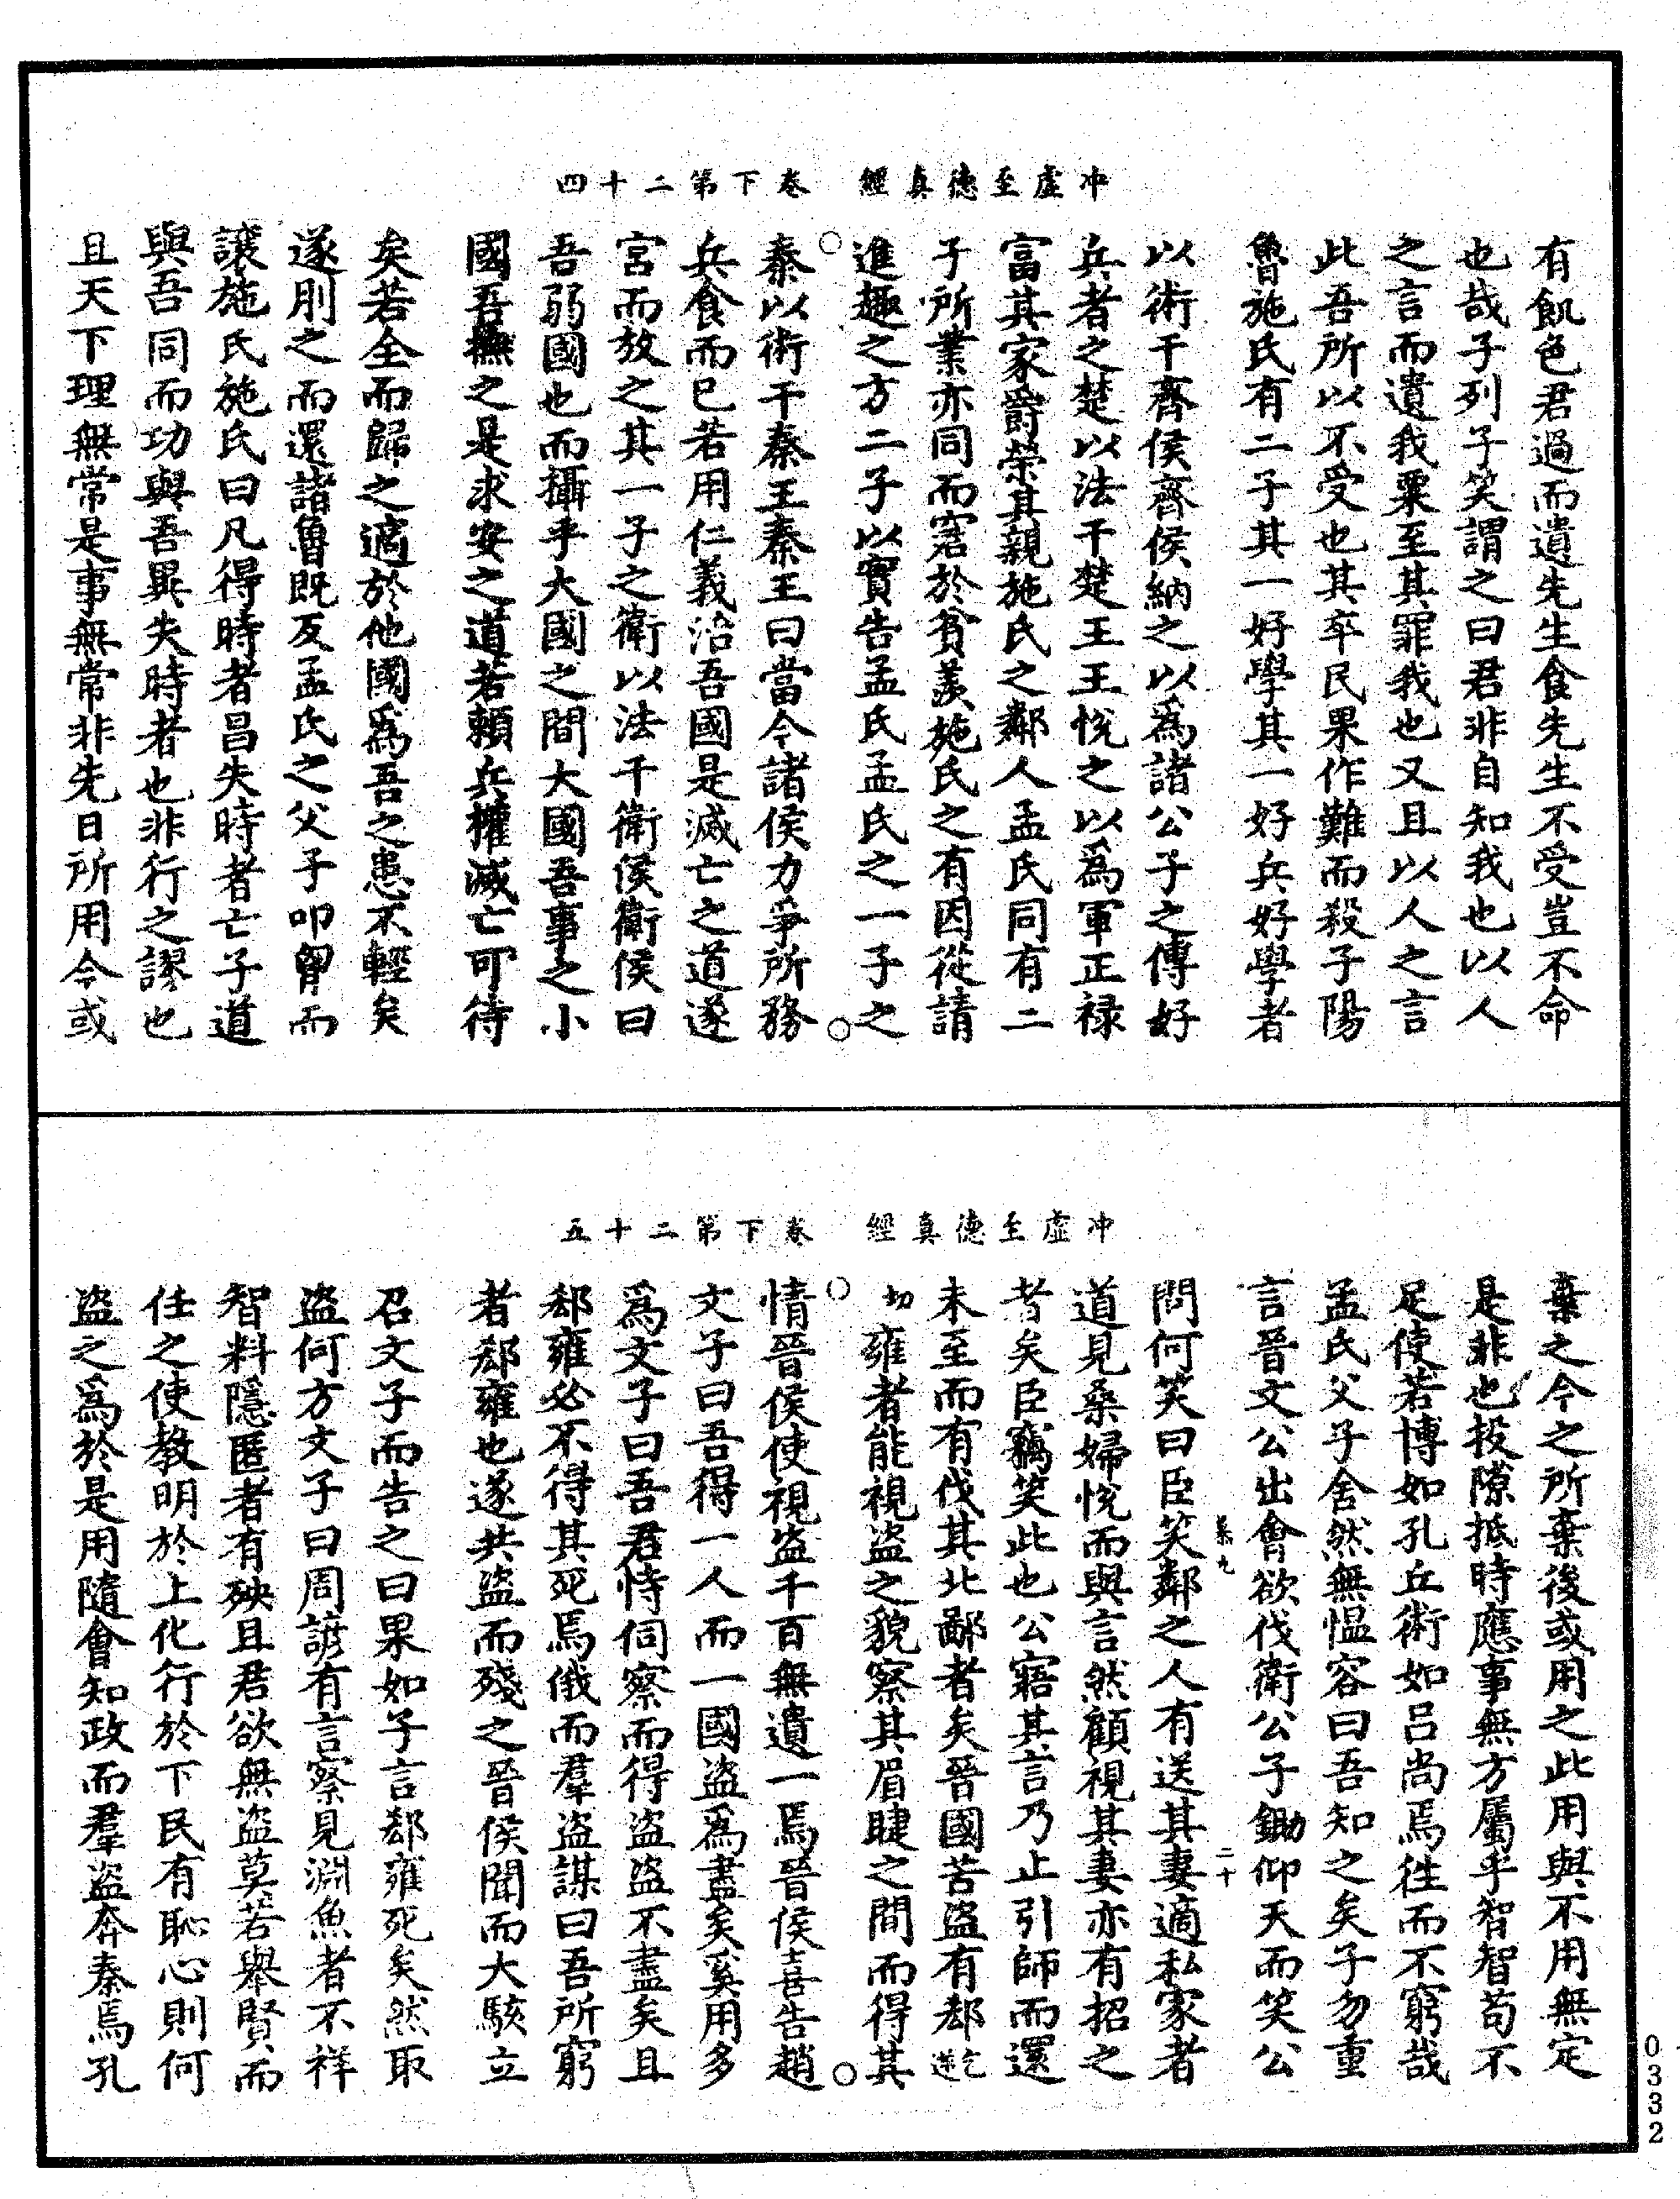 冲虛至德真經　卷下第二十四
有飢色君過而遺先生食先生不受豈不命
也哉子列子笑謂之曰君非自知我也以人
之言而遺我粟至其罪我也又且以人之言
此吾所以不受也其卒民果作難而殺子陽
魯施氏有二子其一好學其一好兵好學者
以術干齊侯齊侯納之以爲諸公子之傅好
兵者之楚以法干楚王王悅之以爲軍正祿
富其家爵榮其親施氏之鄰人孟氏同有二
子所業亦同而窘於貧羨施氏之有因從請
進趣之方二子以實告孟氏孟氏之一子之
秦以術干秦王秦王曰當今諸侯力爭所務
兵食而已若用仁義治吾國是滅亡之道遂
宮而放之其一子之衛以法干衛侯衛侯曰
吾弱國也而攝乎大國之間大國吾事之小
國吾撫之是求安之道若賴兵權滅亡可待
矣若全而歸之適於他國爲吾之患不輕矣
遂刖之而還諸魯既反孟氏之父子叩胷而
讓施氏施氏曰凡得時者昌失時者亡子道
與吾同而功與吾異失時者也非行之謬也
且天下理無常是事無常非先日所用今或
冲虛至德真經　卷下第二十五
棄之今之所棄後或用之此用與不用無定
是非也投隙抵時應事無方屬乎智智苟不
足使若博如孔丘術如呂尚焉往而不窮哉
孟氏父子舍然無慍容曰吾知之矣子勿重
言晉文公出會欲伐衛公子鋤仰天而笑公
慕九　二十
問何笑曰臣笑鄰之人有送其妻適私家者
道見桑婦悅而與言然顧視其妻亦有招之
者矣臣竊笑此也公寤其言乃止引師而還
未至而有伐其北鄙者矣晉國苦盜有郄乞逆
切雍者能視盜之貌察其眉睫之間而得其
情晉侯使視盜千百無遺一焉晉侯喜告趙
文子曰吾得一人而一國盜爲盡矣奚用多
爲文子曰吾君恃伺察而得盜盜不盡矣且
郄雍必不得其死焉俄而羣盜謀曰吾所窮
者郄雍也遂共盜而殘之晉侯聞而大駭立
召文子而告之曰果如子言郄雍死矣然取
盜何方文子曰周諺有言察見淵魚者不祥
智料隱匿者有殃且君欲無盜莫若舉賢而
任之使教明於上化行於下民有恥心則何
盜之爲於是用隨會知政而羣盜奔秦焉孔
0332